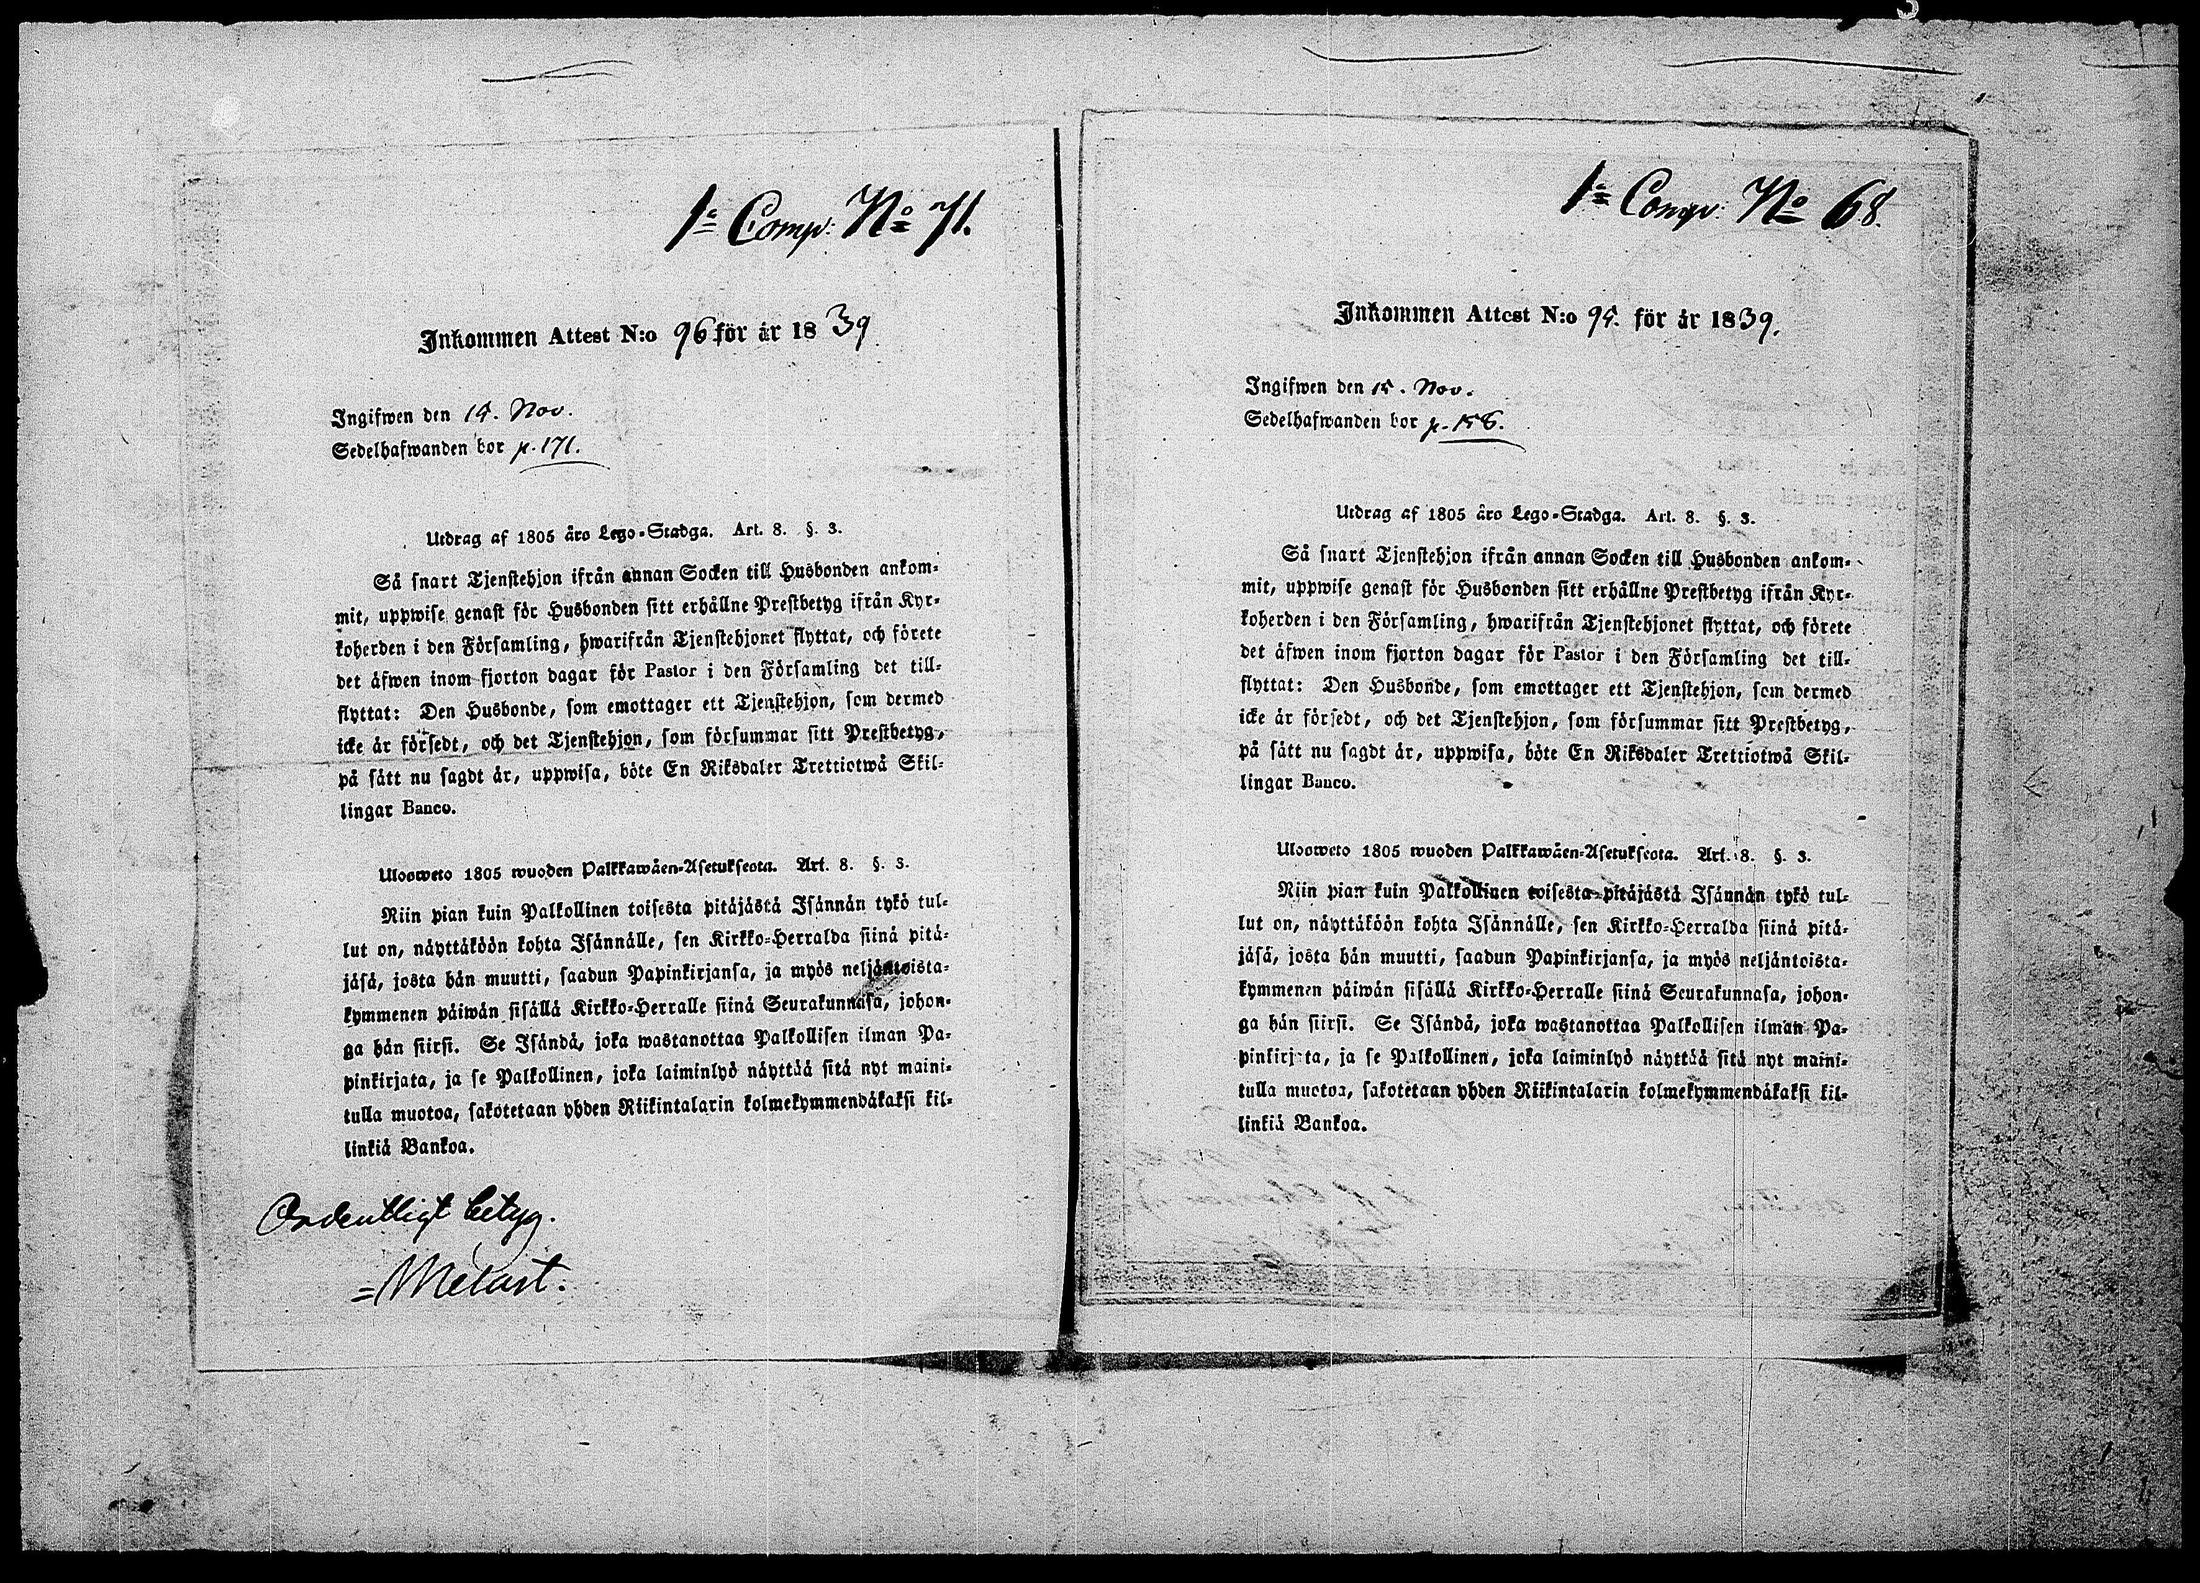 1:a Comp: No 71.
Inkommen Attest N:o 96 för år 1839
Ingifwen den 15. Nov.
Sedelhafwanden bor p. 171.
Utdrag af 1805 års Lego-Stadga. Art. 8. §. 3.
Så snart Tjenstehjon ifrån annan Socken till Husbonden ankom-
mit, uppwise genast för Husbonden sitt erhållne Prestbetyg ifrån Kyr-
koherden i den Församling, hwarifrån Tjenstehjonet flyttat, och förete
det äfwen inom fjorton dagar för Pastor i den Församling det till-
flyttat: Den Husbonde, som emottager ett Tjenstehjon, som dermed
icke är försedt, och det Tjenstehjon, som försummar sitt Prestbetyg,
på sätt nu sagdt är, uppwisa, böte En Riksdaler Trettiotwå Skil-
lingar Banco.
Ulosweto 1805 wuoden Palkkawäen-Asetuksesta. Art. 8. §. 3.
Niin pian kuin Palkollinen toisesta pitäjästä Isännän tykö tul-
lut on, näyttäköön kohta Isännälle, sen Kirkko-Herralda siinä pitä-
jäsä, josta hän muutti, saadun Papinkirjansa, ja myös neljäntoista-
kymmenen päiwän sisällä Kirkko-Herralle siinä Seurakunnasa, johon-
ga hän siirsi. Se Isändä, joka wastanottaa Palkollisen ilman Pa-
pinkirjata, ja se Palkollinen, joka laiminlyö näyttää sitä nyt maini-
tulla muotoa, sakotetaan yhden Riikintalarin kolmekymmendäkaksi kil-
linkiä Bankoa.
Ordentligt betyg.
=Melart.
1:a Comp: No 68.
Inkommen Attest N:o 95. för år 1839.
Ingifwen den 15. Nov.
Sedelhafwanden bor p. 158.
Utdrag af 1805 års Lego-Stadga. Art. 8. §. 3.
Så snart Tjenstehjon ifrån annan Socken till Husbonden ankom-
mit, uppwise genast för Husbonden sitt erhållne Prestbetyg ifrån Kyr-
koherden i den Församling, hwarifrån Tjenstehjonet flyttat, och förete
det äfwen inom fjorton dagar för Pastor i den Församling det till-
flyttat: Den Husbonde, som emottager ett Tjenstehjon, som dermed
icke är försedt, och det Tjenstehjon, som försummar sitt Prestbetyg,
på sätt nu sagdt är, uppwisa, böte En Riksdaler Trettiotwå Skil-
lingar Banco.
Ulosweto 1805 wuoden Palkkawäen-Asetuksesta. Art. 8. §. 3.
Niin pian kuin Palkollinen toisesta pitäjästä Isännän tykö tul-
lut on, näyttäköön kohta Isännälle, sen Kirkko-Herralda siinä pitä-
jäsä, josta hän muutti, saadun Papinkirjansa, ja myös neljäntoista-
kymmenen päiwän sisällä Kirkko-Herralle siinä Seurakunnasa, johon-
ga hän siirsi. Se Isändä, joka wastanottaa Palkollisen ilman Pa-
pinkirjata, ja se Palkollinen, joka laiminlyö näyttää sitä nyt maini-
tulla muotoa, sakotetaan yhden Riikintalarin kolmekymmendäkaksi kil-
linkiä Bankoa.